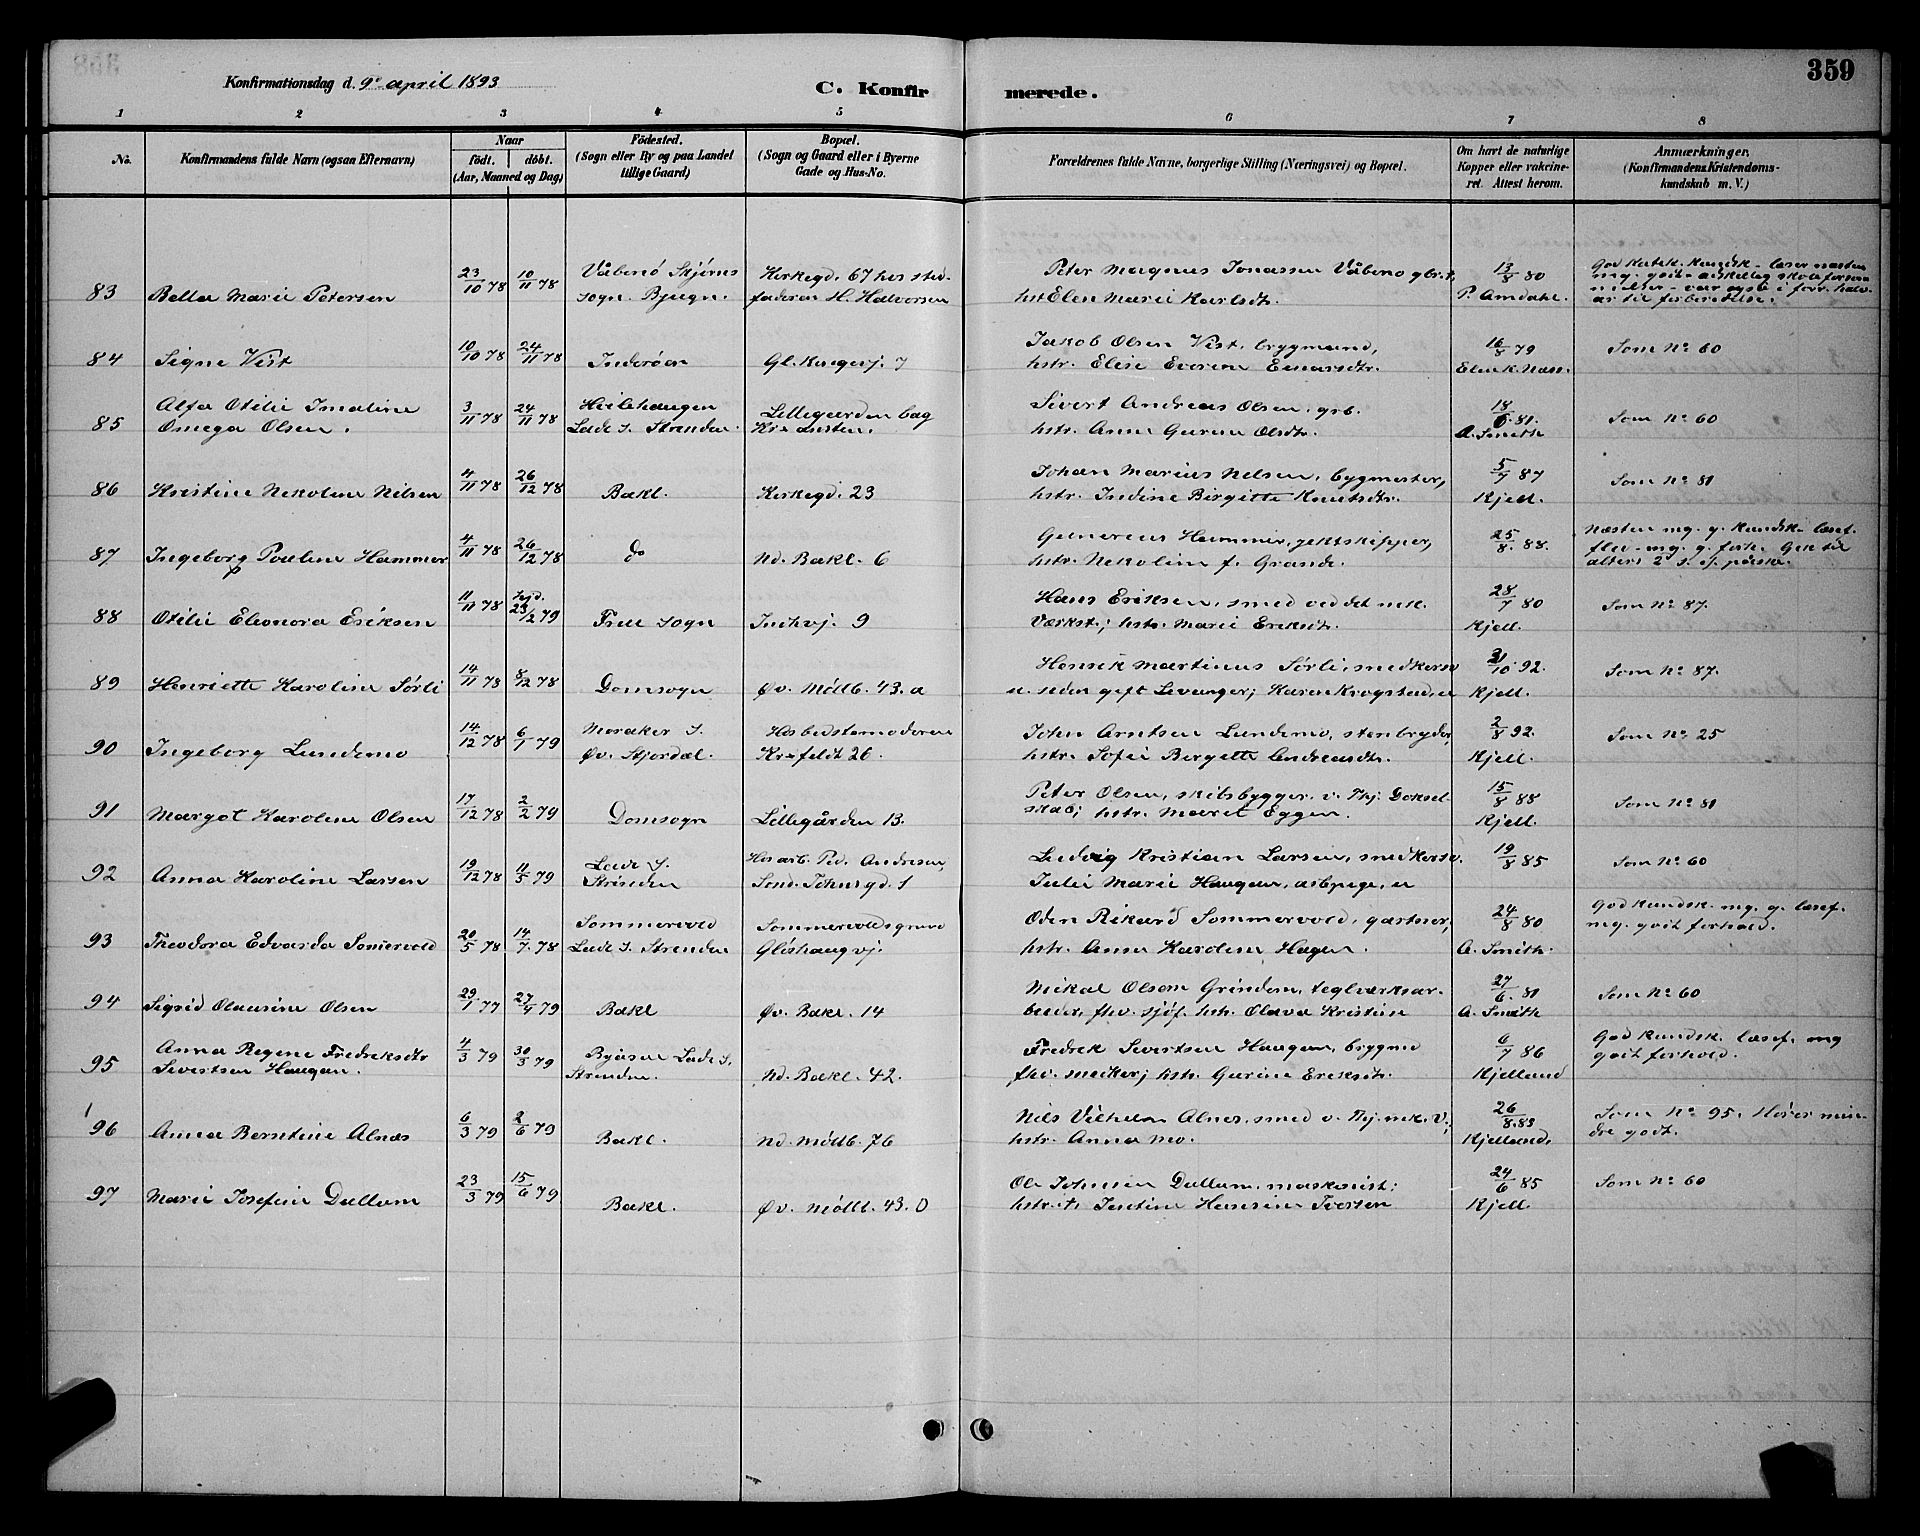 359
Konfirmationsdag d. 9de april 1893
C. Konfirmerede.
1 2 3 4 5 6 7 8
No.
Konfirmandens fulde Navn (ogsaa Efternavn)
Naar
födt. döbt.
(Aar, Maaned og Dag)
Födested.
(Sogn eller By og paa Landet
tillige Gaard)
Bopæl.
(Sogn og Gaard eller i Byerne
Gade og Hus-No.
Forældrenes fulde Navne, borgerlige Stilling (Næringsvei) og Bopæl.
Om havt de naturlige
Kopper eller vakcine-
ret. Attest herom.
Anmærkninger.
(Konfirmandens Kristendoms-
kundskab m. V.)
83 Bella Marie Petersen 23/10 78 10/11 78 Våbenö Skjörns sogn. Bjugn. Kirkegd. 67 hos stedfaderen H. Halvorsen
Peter Magnus Jonassen Våbenö gbr.,
hst. Elen Marie Karlsdtr. 13/8 80 P. Amdahl.
84 Signe Vist 10/10 78 24/11 78 Inderöen Gl. Kongevj. 7
Jakob Olsen Vist, brygmand,
hstr. Elise Everine Einarsdtr. 16/8 79 Elen K. Næss. Som No 60
85 Alfa Otilie Imaline
Omega Olsen. 3/11 78 24/11 78 Hvilehaugen
Lade S. Strinden. Lillegaarden bag
Kr-ansten.
Sivert Andreas Olsen, grb.
hstr. Anne Gurine Olsdtr. 18/6 81. A. Smith Som No 60
86 Kristine Nekoline Nilsen 4/11 78 26/12 78 Bakl. Kirkegd. 23
Johan Marius Nilsen, bygmester,
hstr. Indine Birgitte Knutsdtr. 5/7 87 Kjell. Som No 81
87 Ingeborg Pauline Hammer 4/11 78 26/12 78 do Nd. Bakl. 6
Gunerius Hammer, jektskipper,
hstr. Nekoline f. Grande. 25/8. 88. Næsten mg. g. kundsk. læsef.
flev- mg. g. forh. Gik til
alters 2 s. e. påske.
88 Otilie Eleonora Eriksen 11/11 78 hjd. 23/2 79 Frue sogn Indhvj. 9
Hans Eriksen, smed ved det mek.
Værkst.; hstr. Marie Eriksdtr. 28/7 80 Kjell. Som No 87.
89 Henriette Karoline Sörli 14/11 78 8/12 78 Domsogn Øv. Mödlb. 43. a
Henrik Martinus Sörli, snedkersv
u. siden gift Levanger; Karen Krogstad, u 31/10 92. Kjell. Som No 87.
90 Ingeborg Lundemo 14/12 78 6/1 79 Meraker S.
Øv. Stjördal. Hos bedstemoderen
Kr-feldt 26.
John Arntsen Lundemo, stenbryder,
hstr. Sofie Bergette Andreasdtr. 2/8 92. Kjell. Som No 25
91 Margot Karoline Olsen 17/12 78 2/2 79 Domsogn Lillegården 13.
Peter Olsen, skibsbygger v. Thj. Dokselskab; hstr. Marit Eggen. 15/8 88 Kjell. Som No 81
92 Anna Karoline Larsen 19/12 78 11/5 79 Lade S.
Strinden Hos arb. Ped. Andresen,
Sönd. Johnsgd. 1
Ludvig Kristian Larsen, snedkersv.
Julie Marie Haugan, arbpige, u 19/8 85 Som No 60
93 Theodora Edvarda Somervold 20/5 78 14/7. 78 Sommervold
Lade S. Strinden Sommervoldsgrund
Glöshaugvj.
Oden Rikard Sommervold, gartner,
hstr. Anna Karoline Hagen. 24/8 80 A. Smith. God kundsk. mg. g. læsef.
mg. godt forhold.
94 Sigrid Olausine Olsen 29/1 77 27/4 79 Bakl Øv. Bakl. 14
Mikal Olsen Grindem, teglværksar-
beider, fhv. sjöf. hstr. Olava Kristine 27/6. 81 A. Smith Som No 60
95 Anna Regine Fredriksdtr
Sivertsen Haugan. 4/3 79 30/3 79 Byåsen Lade S.
Strinden. Nd. Bakl. 42.
Fredrik Sivertsen Haugan, brygmd
fhv. snedker; hstr. Gurine Eriksdtr. 6/7 86 Kjelland God kundsk. læsef. mg
godt forhold.
96 Anna Berntine Alnæs 6/3 79 2/6 79 Bakl. Nd. Mödlb. 76
Nils Vilhelm Alnes, smed v. Thj. mk. V.;
hstr. Anna Mo. 26/8. 83 Kjelland. Som No 95. Hörer min-
dre godt.
97 Marie Josefine Dullum 23/3 79 15/6 79 Bakl. Øv. Mödlb. 43. D
Ole Johnsen Dullum, maskinist;
hstr. Justine Hansine Iversen 24/6 85 Kjell. Som No 60